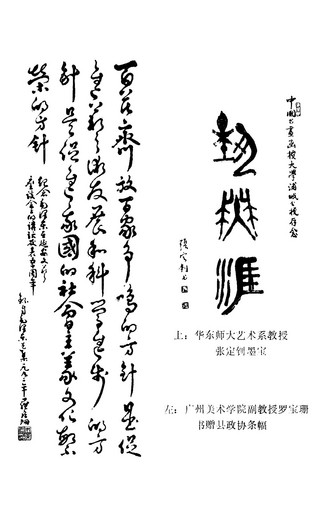 中国书画函授大学浦城分校存念
藝無涯
上：华东师大艺术系教授
张定钊墨宝
左：广州美术学院副教授罗宝珊
书赠县政协条幅
百花齐放百家争鸣的方针是促
进艺术发展和科学进步的方
针是促进我国的社会主义文化繁
荣的方针
纪念毛泽东在延安文艺
座谈会的讲话发表五十周年